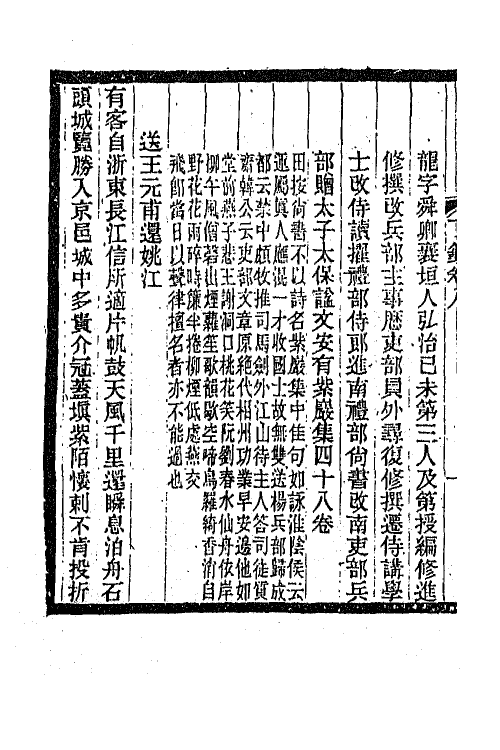 龍字舜卿襄垣人弘怡己未第三人及第授編修進
修撰改兵部主事歷吏部員外尋復修撰遷侍講學
士改侍讀擢禮部侍郎進南禮部尚書改南吏部兵
部贈太子太保諡文安有紫巖集四十八卷
田按尚書不以詩名紫巖集中佳句如詠淮陰侯云
運屬真人應混一才收國士故無雙送楊兵部歸成
都云禁中頗牧推司馬劍外江山待主人答司徒質
齋韓公云吏部文章原絕代相州功業早安邊他如
堂前燕子悲王謝洞口桃花笑阮劉春水仙舟依岸
柳午風僧磬出煙蘿笙歌韻歇空啼鳥羅綺香消自
野花花雨碎時簾半捲柳煙低處燕交
飛卽當日以聲律擅名者亦不能過也
送王元甫還姚江
有客自浙東長江信所適片帆鼓天風千里還瞬息泊舟石
頭城覽勝入京邑城中多貴介冠蓋塡紫陌懷刺不肯投折